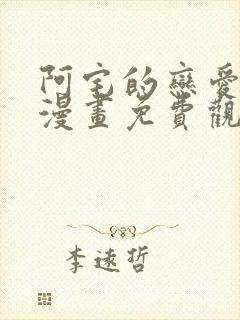 阿宅的戀愛
漫畫免費觀
李遠哲